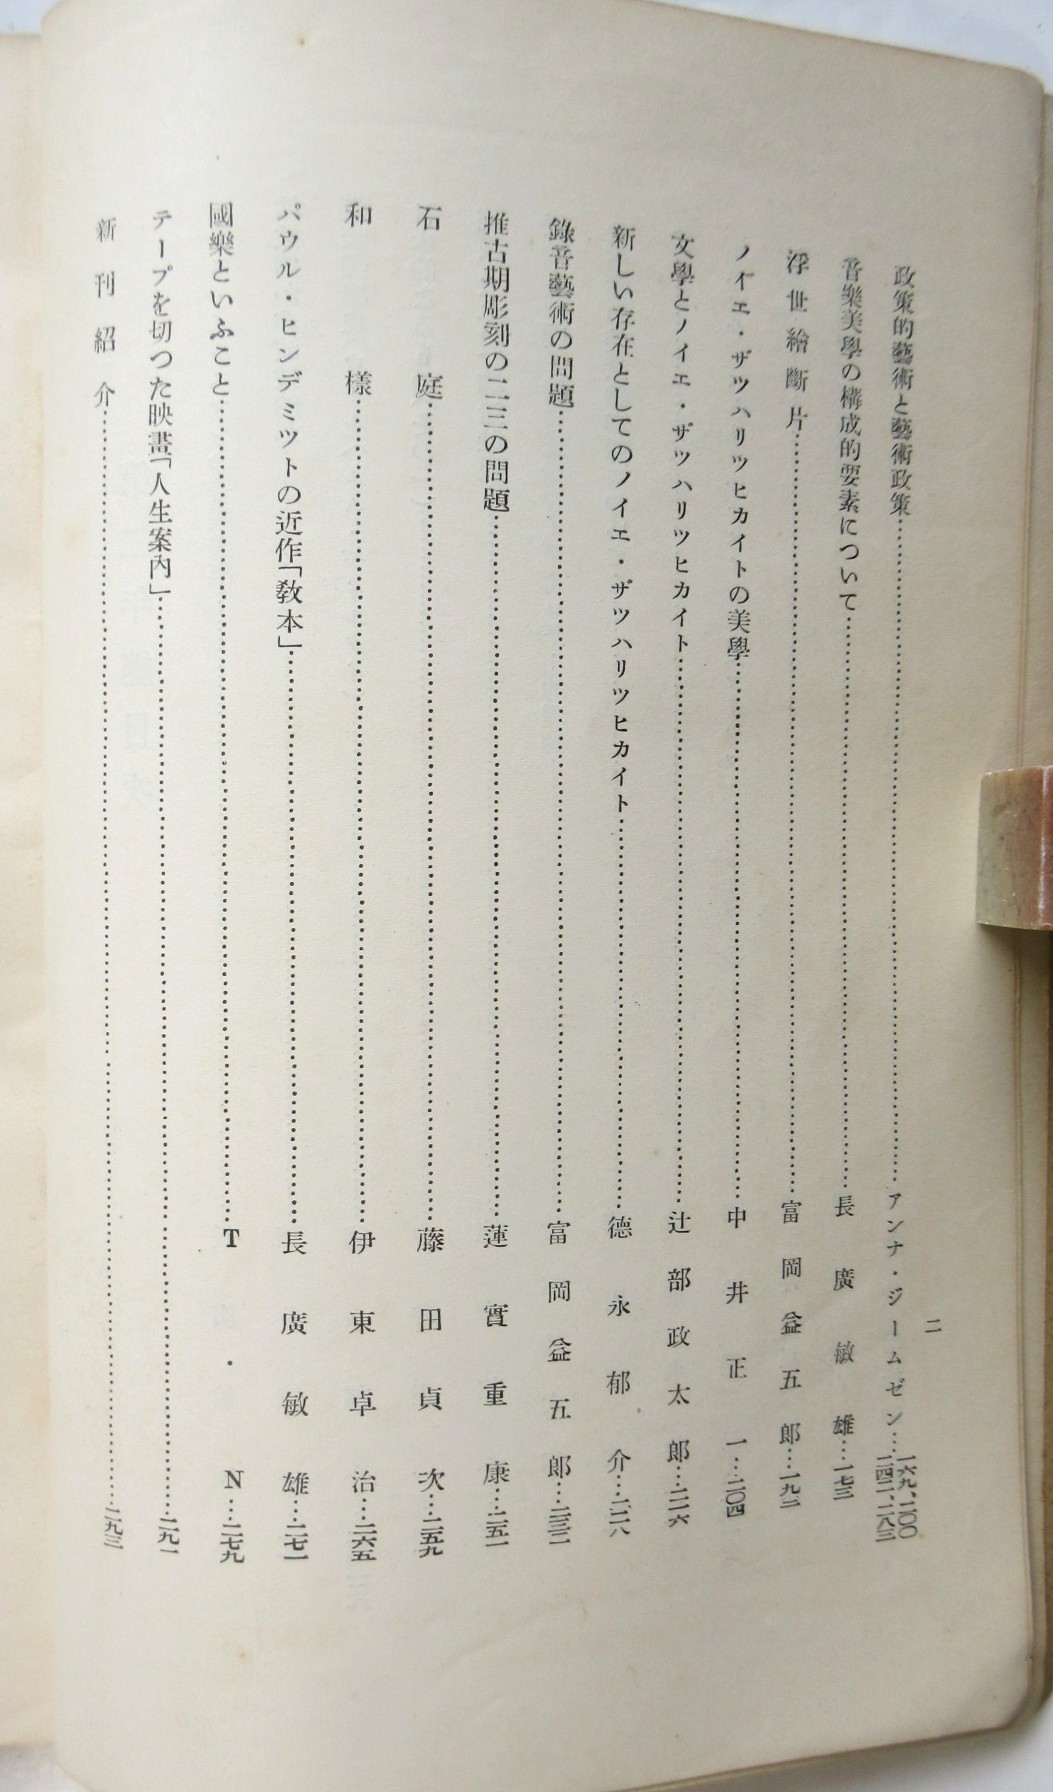 二
政策的藝術と藝術政策……アンナ・ジームゼン…一六九、二〇〇 二四二、二八三
音樂美學の構成的要素について……長廣敏雄…一七三
浮世繪斷片……富岡益五郎…一九二
ノイエ・ザツハリツヒカイトの美學……中井正一…二〇四
文學とノイエ・ザツハリツヒカイト……辻部政太郎…二一六
新しい存在としてのノイエ・ザツハリツヒカイト……德永郁介…二二八
錄音藝術の問題……富岡益五郎…二三二
推古期彫刻の二三の問題……蓮實重康…二五一
石庭……藤田貞次…二五九
和樣……伊東卓治…二六五
パウル・ヒンデミツトの近作「敎本」……長廣敏雄…二七一
國樂といふこと……T・N…二七九
テープを切つた映畫「人生案內」……二九一
新刊紹介……二九三